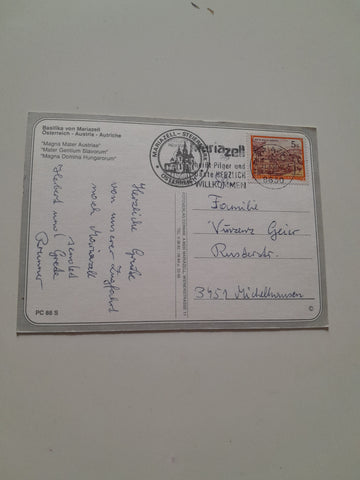 Basilika von Mariazell
Österreich - Austria - Autriche
"Magna Mater Austriae"
"Mater Gentium Slavorum"
"Magna Domina Hungarorum"
Herzliche Grüße
von unserer
nach Mariazell
senden
Hubert und Grete
Brunner
PC 86 S
MARIAZELL - STEIERMARK
ÖSTERREICH
Mariazell
heißt Pilger und
Gäste HERZLICH
WILLKOMMEN
5 S
Familie
Geier
3451 Michelhausen
©